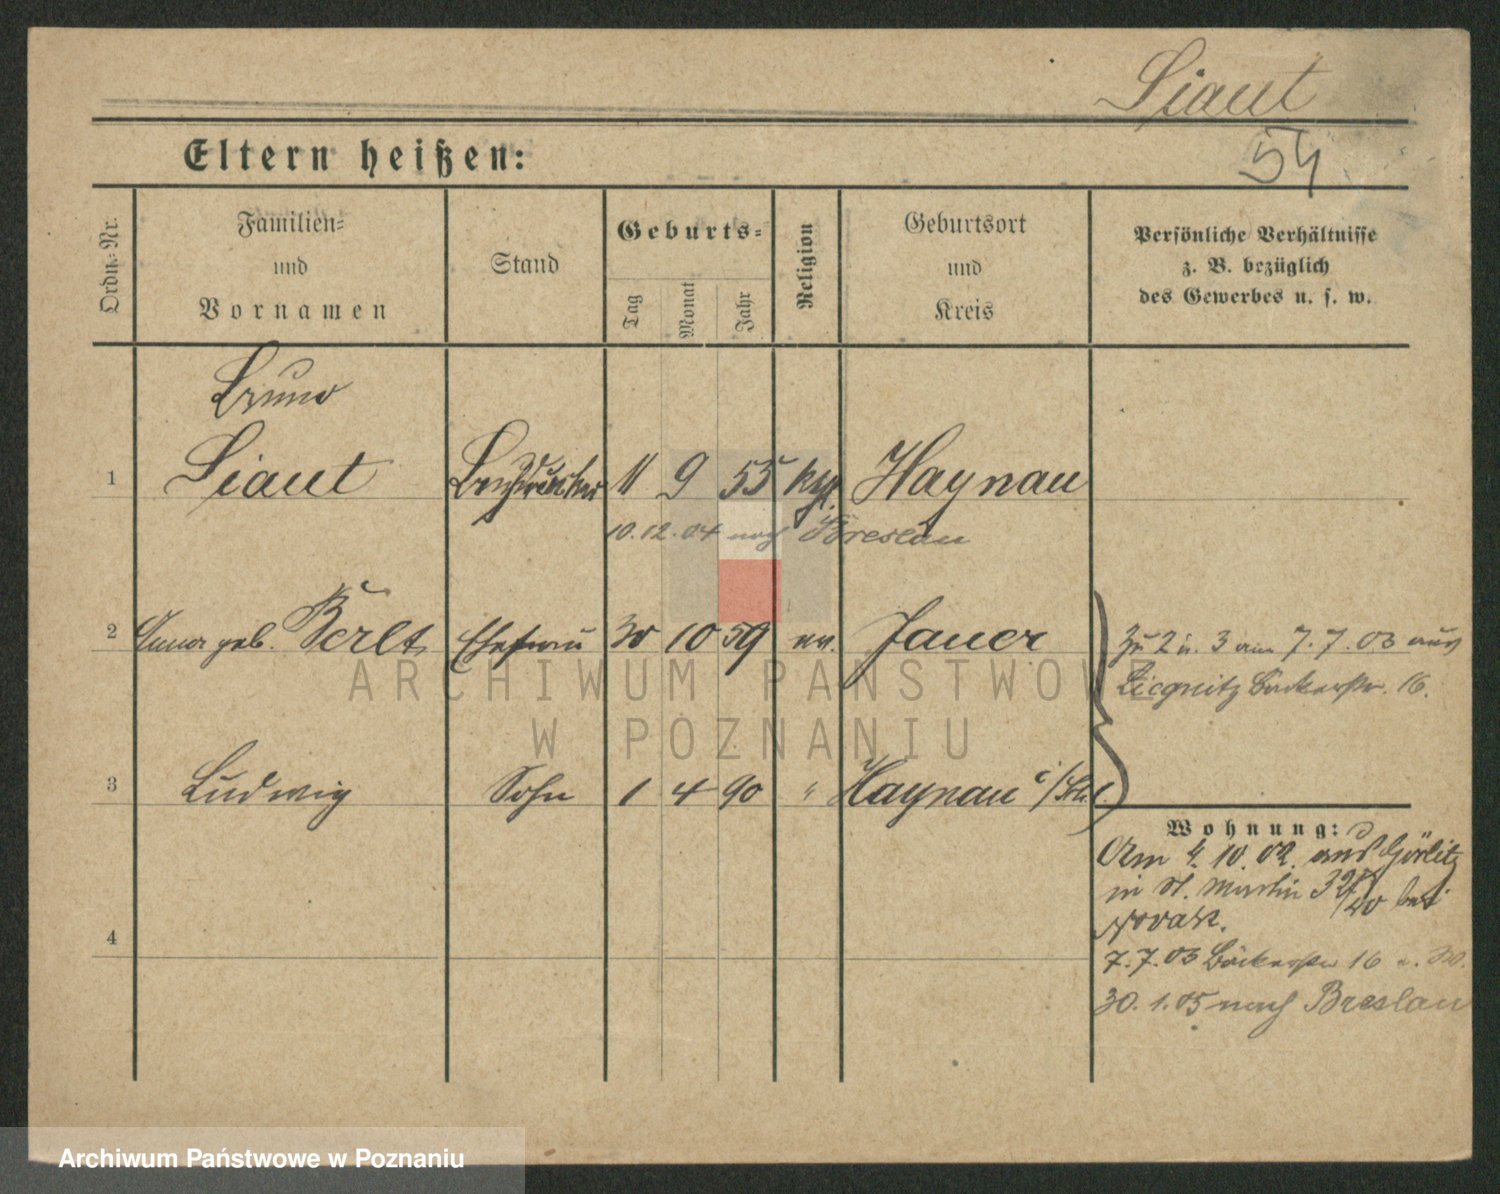 Liaut
54
Eltern heißen:
Ordn.-Nr.
Familien-
und
Vornamen
Stand
Geburts-
Tag
Monat
Jahr
Religion
Geburtsort
und
Kreis
Persönliche Verhältnisse
z. B. bezüglich
des Gewerbes u. s. w.
Bruno
1 Liaut 11 9 55 Haynau
10.12.04 nach Breslau
2 geb. Berlt Ehefrau 30 10 59 ev. Jauer
Zu 2 u. 3 am 7.7.03 aus
Liegnitz Bäckerstr. 16.
3 Ludwig Sohn 1 4 90 " Haynau i/Schl.
Wohnung:
Am 4.10.02. aus Görlitz
in St. Martin bei
Novak.
7.7.03 Bäckerstr 16
30.1.05 nach Breslau
4
ARCHIWUM PAŃSTWOWE
W POZNANIU
Archiwum Państwowe w Poznaniu